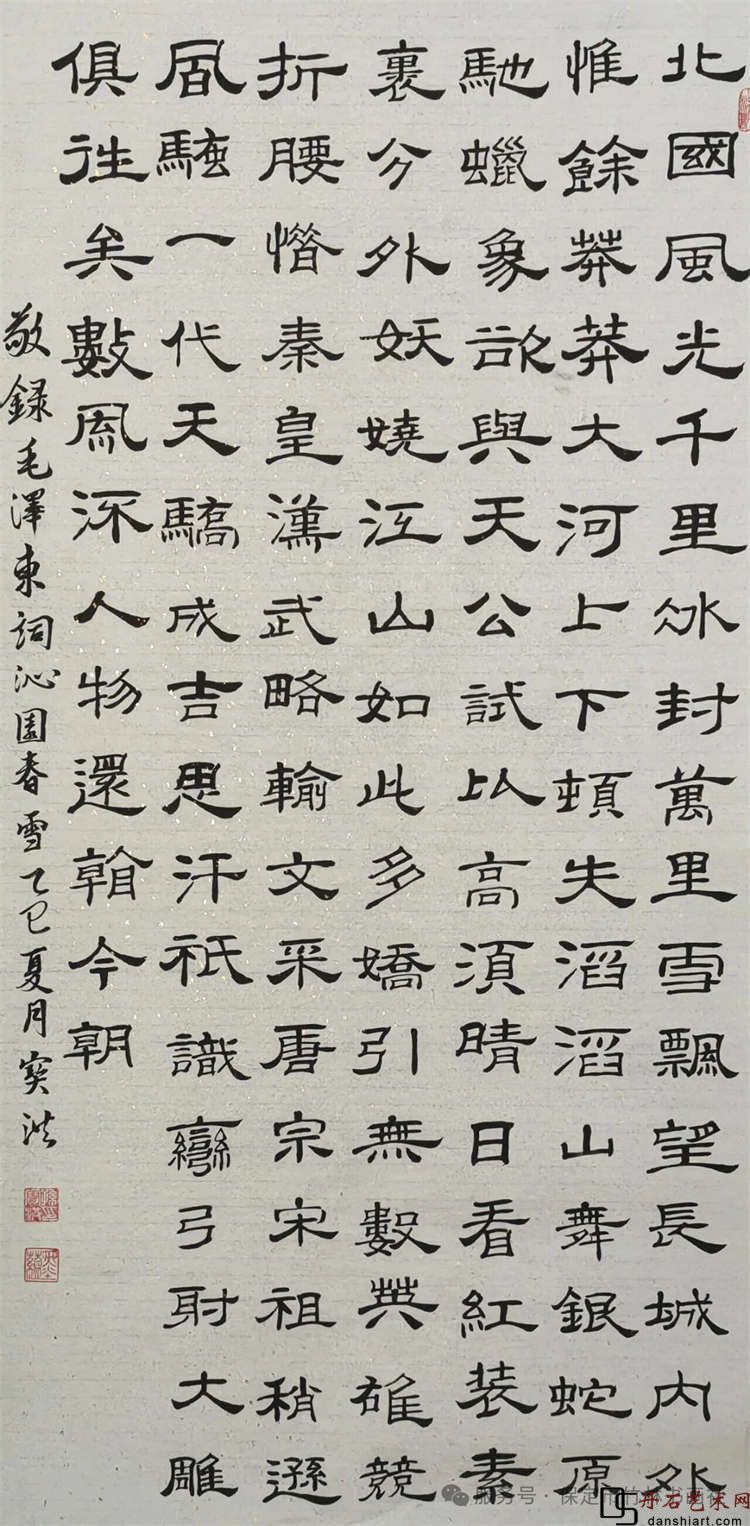 北國風光千里冰封萬里雪飄望長城内外
惟餘莽莽大河上下頓失滔滔山舞銀蛇原
馳蠟象欲與天公試比高須晴日看紅装素
裹分外妖嬈江山如此多嬌引無數英雄競
折腰惜秦皇漢武略輸文采唐宗宋祖稍遜
風騷一代天驕成吉思汗祇識彎弓射大雕
俱往矣數風流人物還看今朝
敬録毛澤東詞沁園春雪乙巳夏月洪
服务号 · 保定市竹林书画社
丹石艺术网
danshiart.com